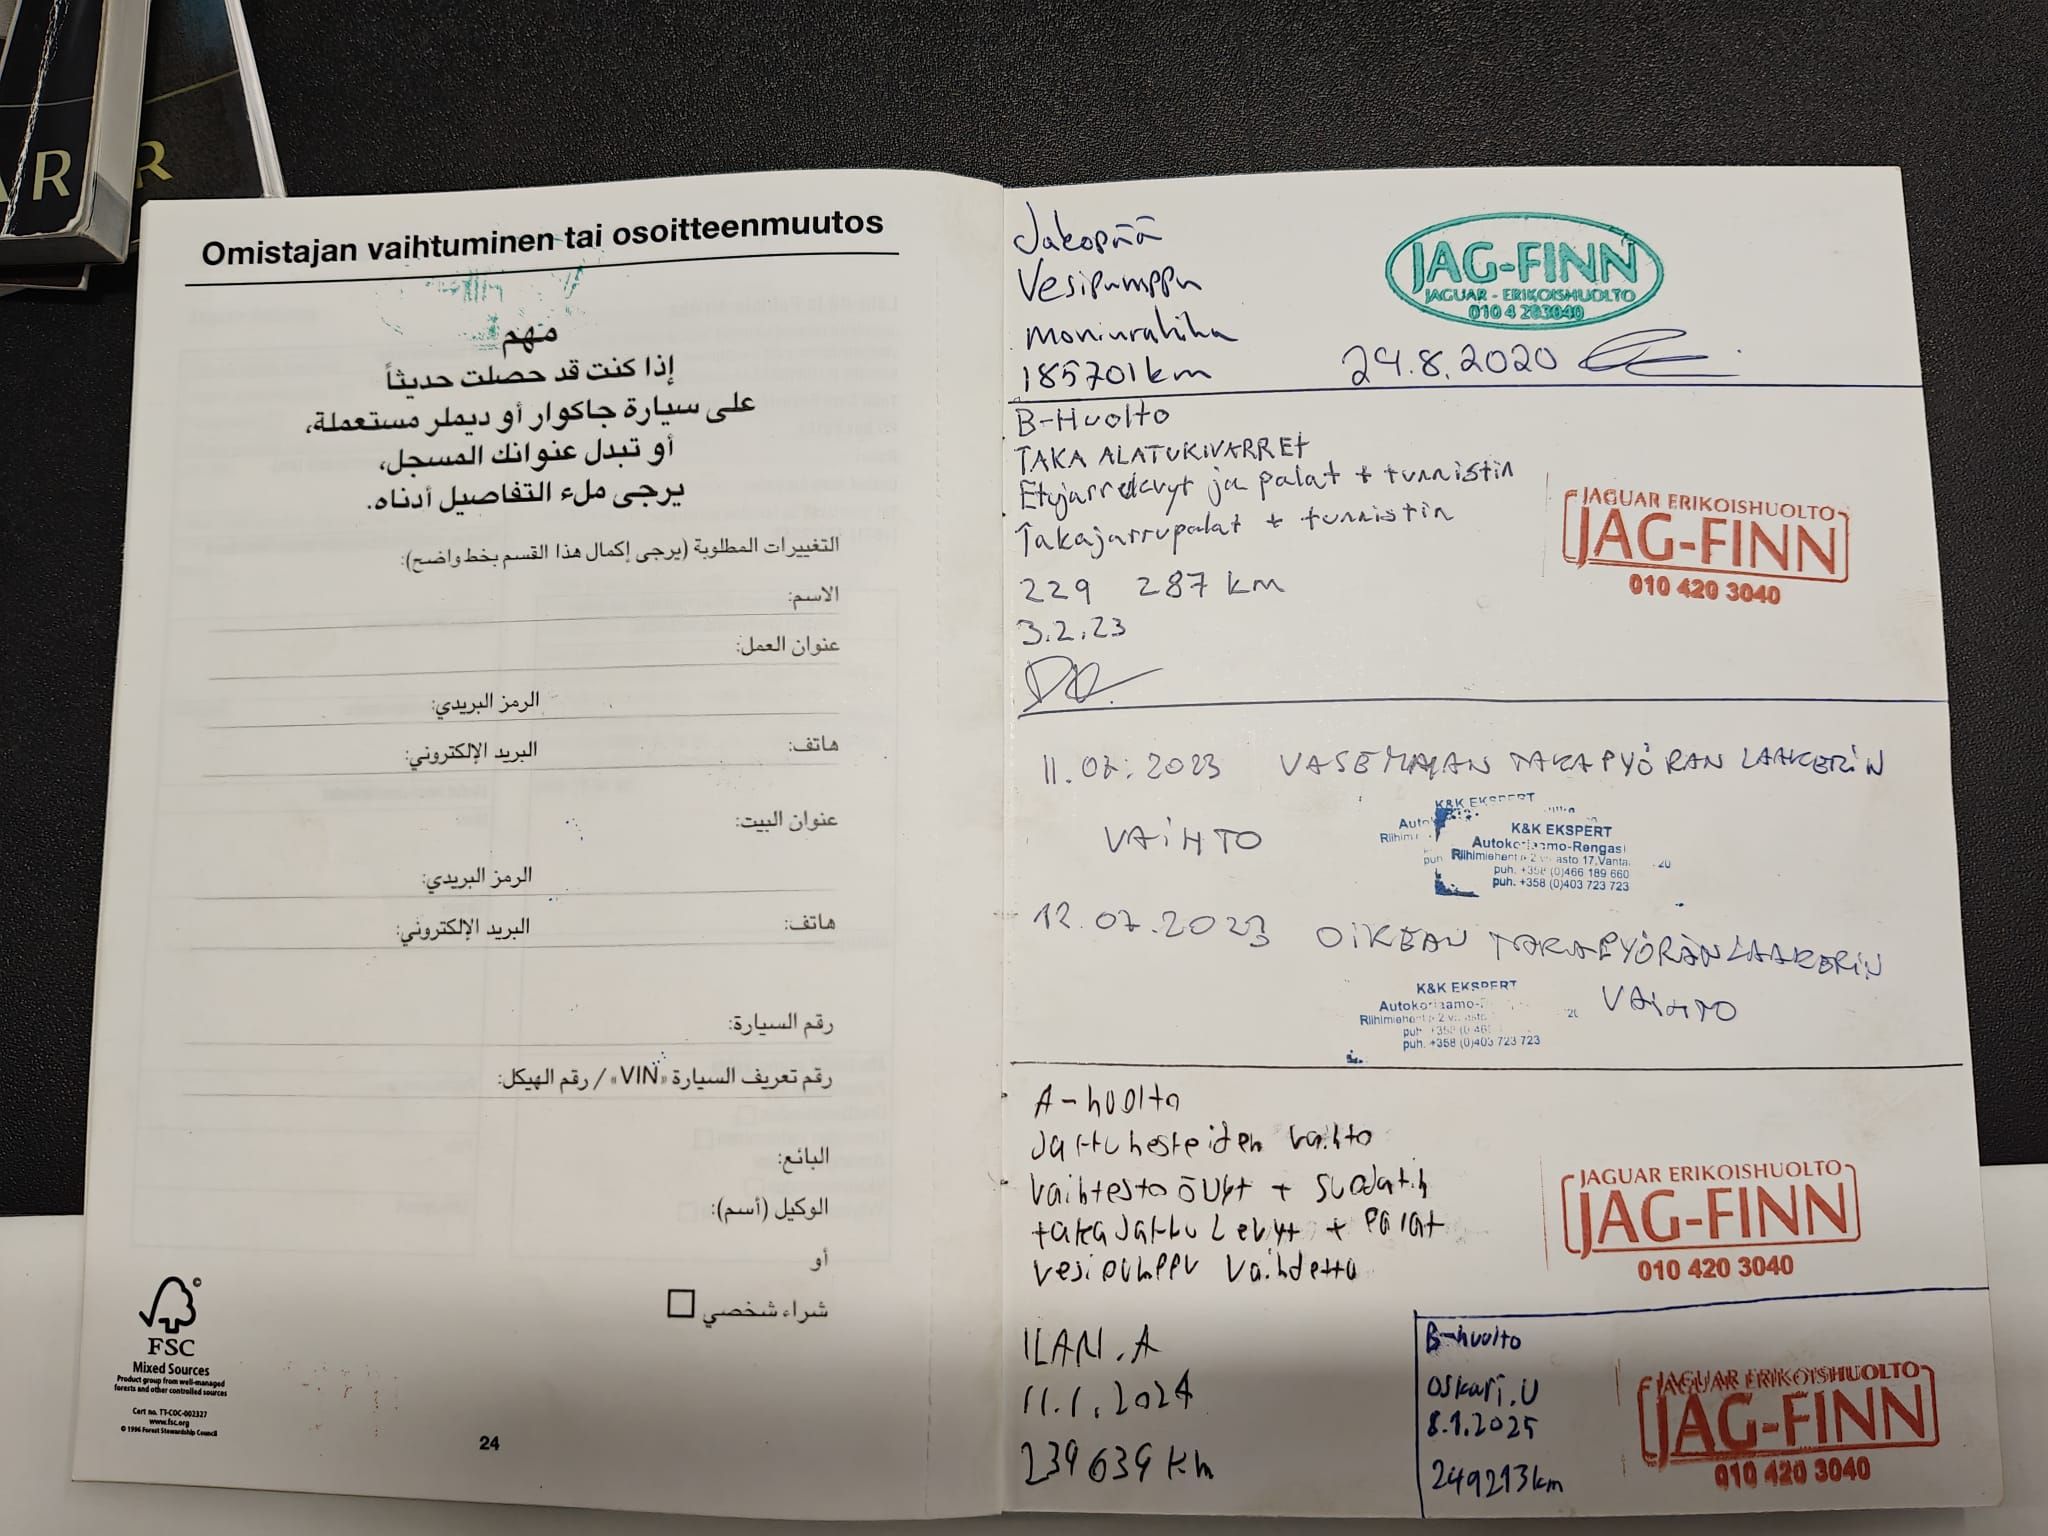 AR
R
Omistajan vaihtuminen tai osoitteenmuutos
مهم
إذا كنت قد حصلت حديثاً
على سيارة جاكوار أو ديملر مستعملة،
أو تبدل عنوانك المسجل،
يرجى ملء التفاصيل أدناه.
التغييرات المطلوبة (يرجى إكمال هذا القسم بخط واضح):
الاسم:
عنوان العمل:
الرمز البريدي:
هاتف: البريد الإلكتروني:
عنوان البيت:
الرمز البريدي:
هاتف: البريد الإلكتروني:
رقم السيارة:
رقم تعريف السيارة «VIN» / رقم الهيكل:
البائع:
الوكيل (أسم):
أو
شراء شخصي
FSC
Mixed Sources
Product group from well-managed
forests and other controlled sources
Cert no. TT-COC-002327
www.fsc.org
© 1996 Forest Stewardship Council
24
Jakopää
Vesipumppu
Moniurahihna
185701km
JAG-FINN
JAGUAR - ERIKOISHUOLTO
010 4 203040
24.8.2020
B-Huolto
TAKA ALATUKIVARRET
Etujarrulevyt ja palat + tunnistin
Takajarrupalat + tunnistin
229 287 km
3.2.23
JAGUAR ERIKOISHUOLTO
JAG-FINN
010 420 3040
11.07.2023 VASEMMAN TAKAPYÖRAN LAAKERIN
VAIHTO
K&K EKSPERT
K&K EKSPERT
Autokorjaamo-Rengas
puh. +358 (0)466 189 660
puh. +358 (0)403 723 723
12.07.2023 OIKEAN TAKAPYÖRÄN LAAKERIN
VAIHTO
K&K EKSPERT
puh. +358 (0)403 723 723
A-huolto
Jarrunesteiden vaihto
Vaihteistoöljyt + suodatin
takaJarru Levyt + Palat
vesipumppu vaihdettu
JAGUAR ERIKOISHUOLTO
JAG-FINN
010 420 3040
ILARI.A
11.1.2024
239639 km
B-huolto
Oskari.U
8.1.2025
249213km
JAGUAR ERIKOISHUOLTO
JAG-FINN
010 420 3040